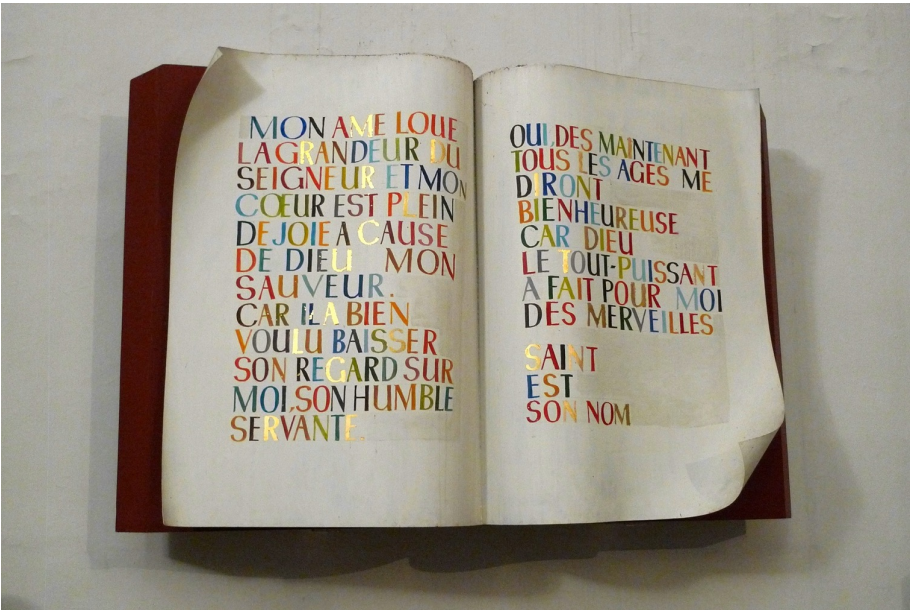 MON AME LOUE
LA GRANDEUR DU
SEIGNEUR ET MON
CŒUR EST PLEIN
DE JOIE A CAUSE
DE DIEU MON
SAUVEUR.
CAR IL A BIEN
VOULU BAISSER
SON REGARD SUR
MOI, SON HUMBLE
SERVANTE.
OUI, DES MAINTENANT
TOUS LES AGES ME
DIRONT
BIENHEUREUSE
CAR DIEU
LE TOUT-PUISSANT
A FAIT POUR MOI
DES MERVEILLES
SAINT
EST
SON NOM